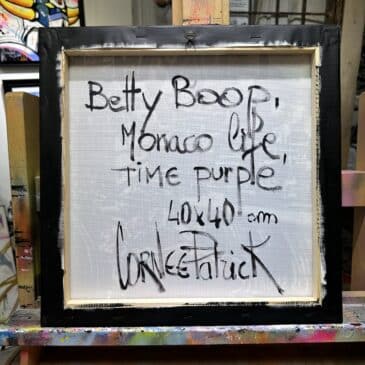 Betty Boop,
Monaco life,
Time purple
40x40 cm
Cornee Patrick